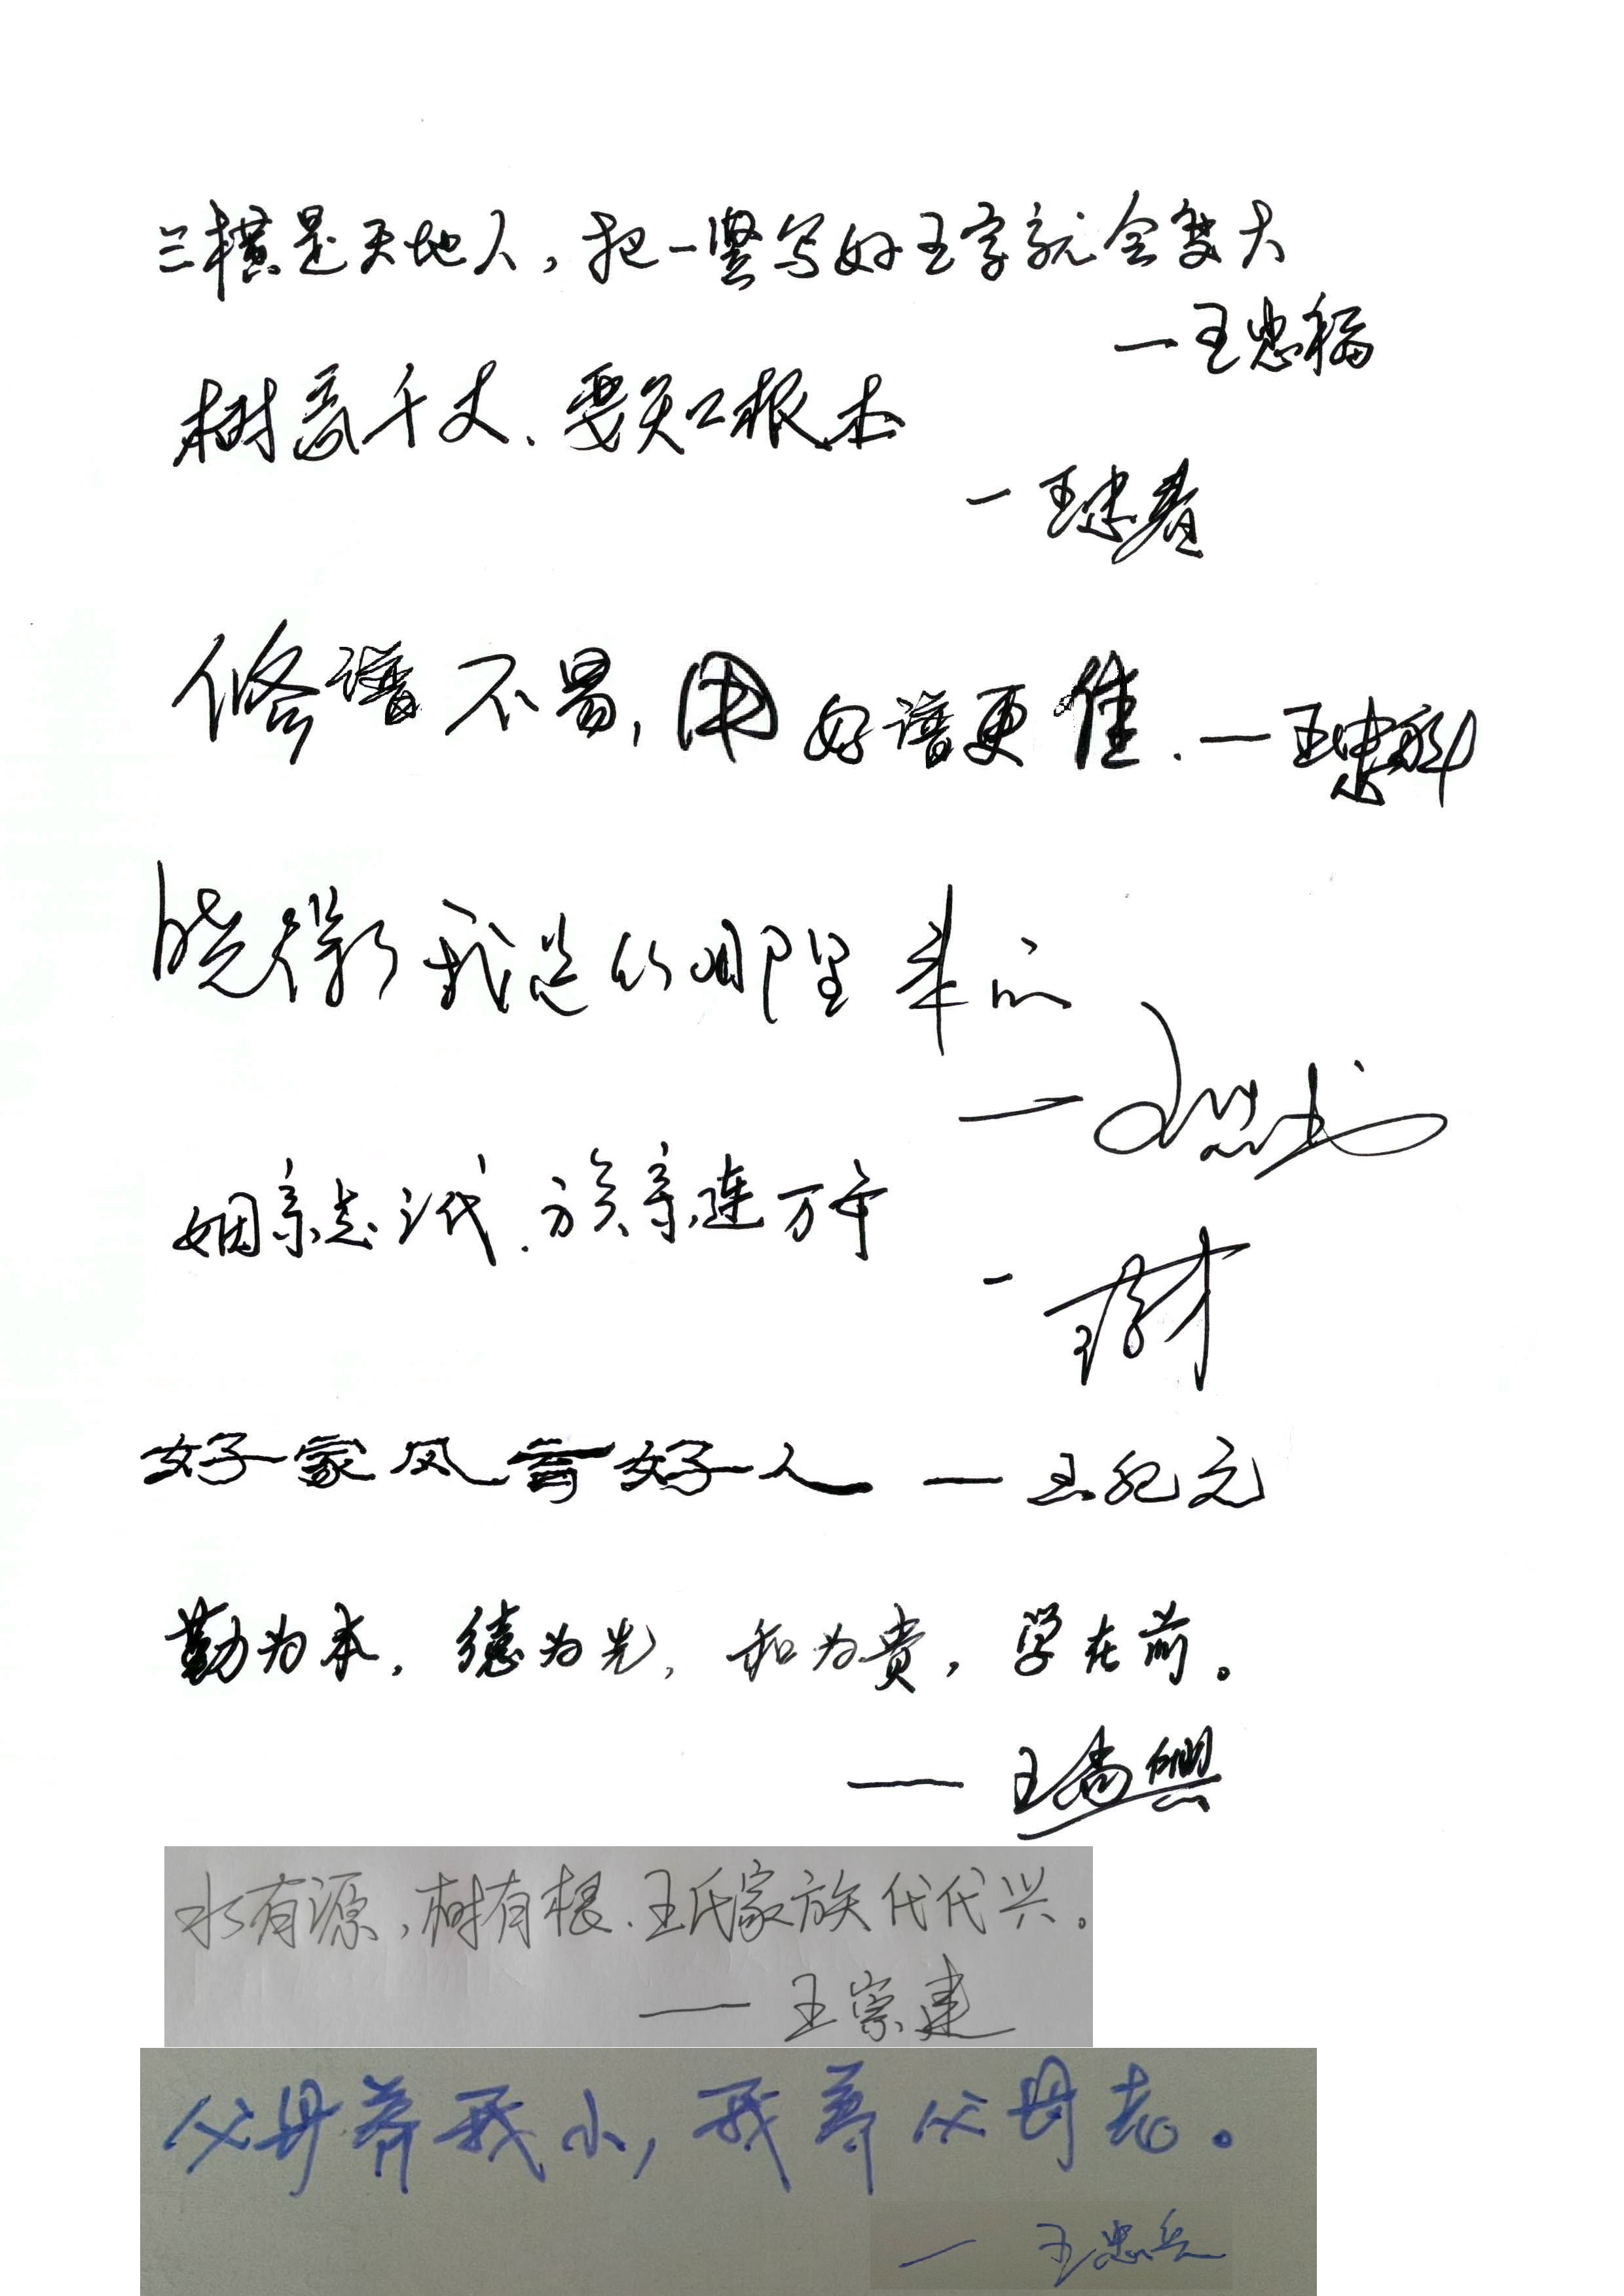 三横是天地人，把一竖写好王字就会变大
一王忠福
树高千丈.要知根本
一王忠春
修谱不易,用好谱更佳.一王忠科
晓得我是的哪里来的
一王忠
姻亲三代.方族亲连万年
一王才
好家风育好人 一王纪元
勤为本，德为先，和为贵，学在前。
——王尚兴
水有源,树有根.王氏家族代代兴。
——王崇建
父母养我小,我养父母老。
一王忠兵